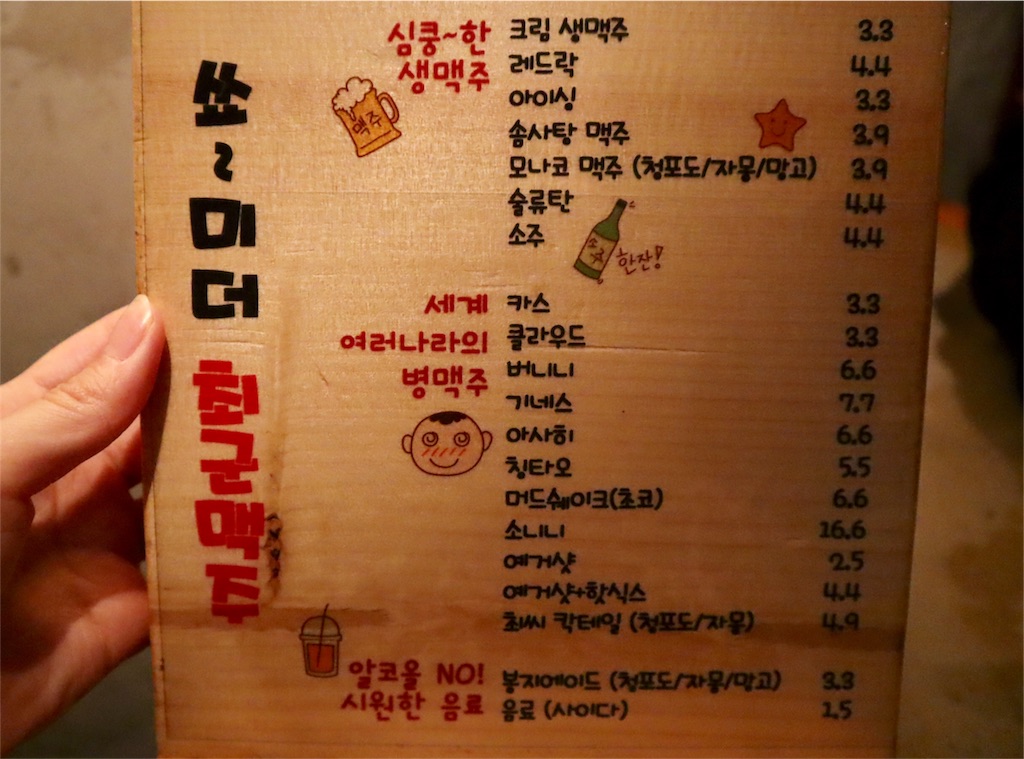 쏘~미더
최군맥주
심쿵~한
생맥주
맥주
크림 생맥주 3.3
레드락 4.4
아이싱 3.3
솜사탕 맥주 3.9
모나코 맥주 (청포도/자몽/망고) 3.9
술류탄 4.4
소주 4.4
소주
한잔!
세계
여러나라의
병맥주
카스 3.3
클라우드 3.3
버니니 6.6
기네스 7.7
아사히 6.6
칭타오 5.5
머드쉐이크(초코) 6.6
소니니 16.6
예거샷 2.5
예거샷+핫식스 4.4
최씨 칵테일 (청포도/자몽) 4.9
알코올 NO!
시원한 음료
봉지에이드 (청포도/자몽/망고) 3.3
음료 (사이다) 1.5